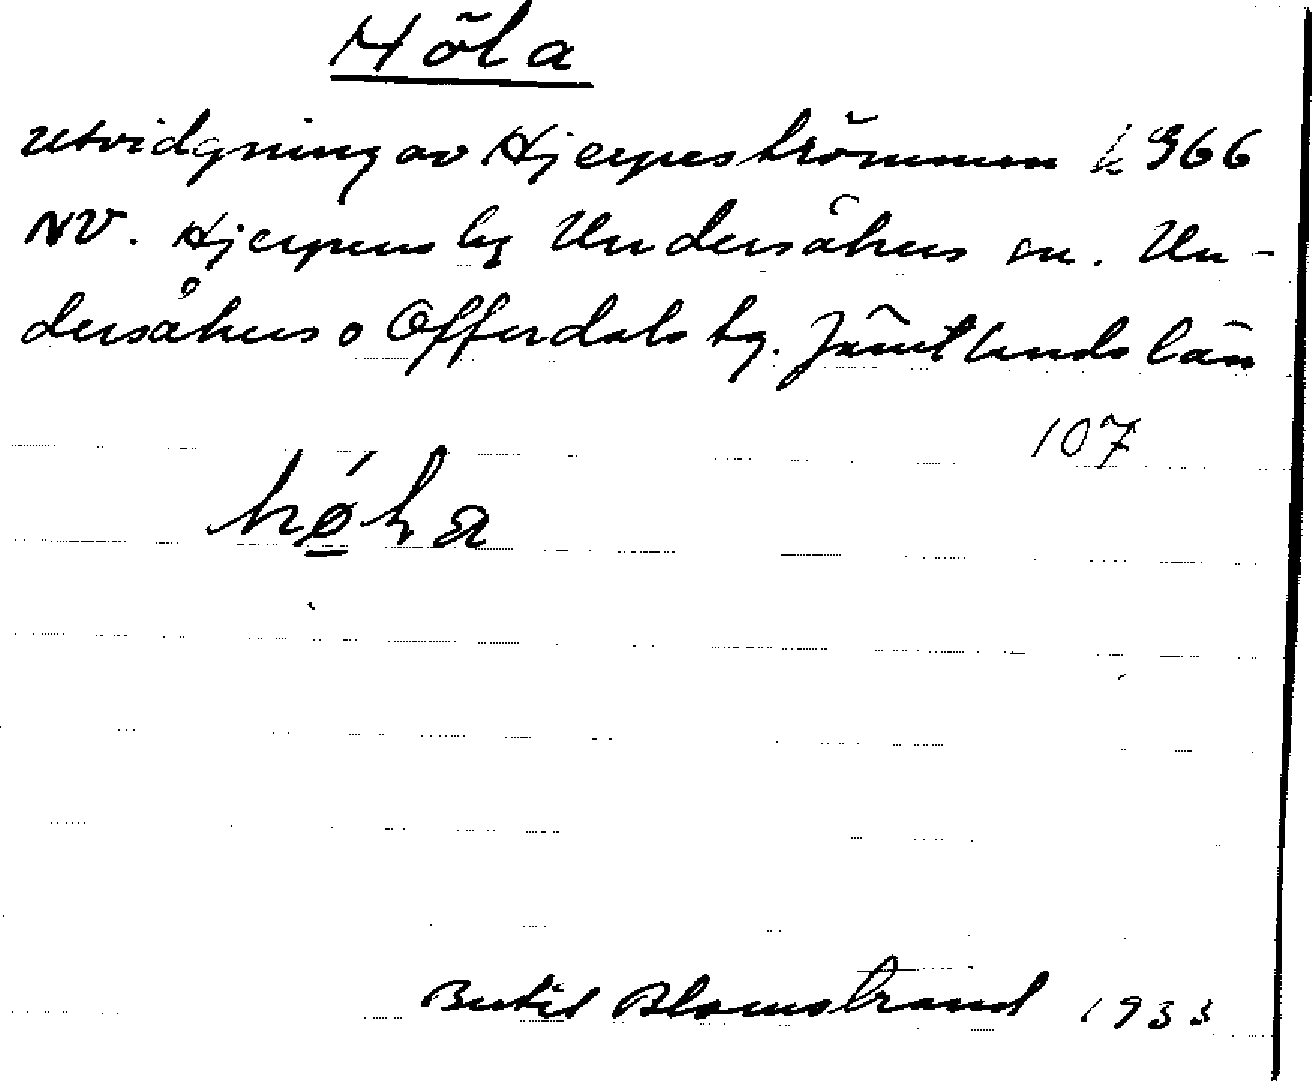 Höla
utvidgning av Hjerpeströmmen k 966
NV. Hjerpens by Undersåkers sn. Un-
dersåkers o Offerdals tg. Jämtlands län
107
Bertil Blomstrand 1933